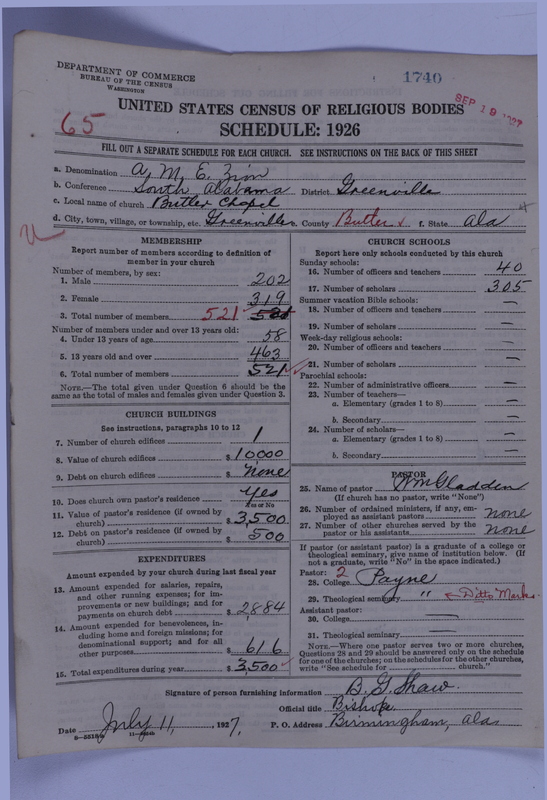 DEPARTMENT OF COMMERCE
BUREAU OF THE CENSUS
WASHINGTON
1740
SEP 19 1927
65
UNITED STATES CENSUS OF RELIGIOUS BODIES
SCHEDULE: 1926
FILL OUT A SEPARATE SCHEDULE FOR EACH CHURCH. SEE INSTRUCTIONS ON THE BACK OF THIS SHEET
a. Denomination A. M. E. Zion
b. Conference South Alabama District Greenville
c. Local name of church Butler Chapel
d. City, town, village, or township, etc. Greenville e. County Butler x f. State Ala
MEMBERSHIP
Report number of members according to definition of
member in your church
Number of members, by sex:
1. Male 202
2. Female 319
3. Total number of members 521 581
Number of members under and over 13 years old:
4. Under 13 years of age 58
5. 13 years old and over 463
6. Total number of members 521 ✓
NOTE.—The total given under Question 6 should be the
same as the total of males and females given under Question 3.
CHURCH BUILDINGS
See instructions, paragraphs 10 to 12
7. Number of church edifices 1
8. Value of church edifices $ 10000
9. Debt on church edifices $ None
10. Does church own pastor's residence Yes
Yes or No
11. Value of pastor's residence (if owned by
church) $ 3,500
12. Debt on pastor's residence (if owned by
church) $ 500
EXPENDITURES
Amount expended by your church during last fiscal year
13. Amount expended for salaries, repairs,
and other running expenses; for im-
provements or new buildings; and for
payments on church debt $ 2,884
14. Amount expended for benevolences, in-
cluding home and foreign missions; for
denominational support; and for all
other purposes $ 616
15. Total expenditures during year $ 3,500 ✓
CHURCH SCHOOLS
Report here only schools conducted by this church
Sunday schools:
16. Number of officers and teachers 40
17. Number of scholars 305
Summer vacation Bible schools:
18. Number of officers and teachers —
19. Number of scholars —
Week-day religious schools:
20. Number of officers and teachers —
21. Number of scholars —
Parochial schools:
22. Number of administrative officers —
23. Number of teachers—
a. Elementary (grades 1 to 8) —
b. Secondary —
24. Number of scholars—
a. Elementary (grades 1 to 8) —
b. Secondary —
PASTOR
25. Name of pastor Wm Gladden
(If church has no pastor, write "None")
26. Number of ordained ministers, if any, em-
ployed as assistant pastors none
27. Number of other churches served by the
pastor or his assistants none
If pastor (or assistant pastor) is a graduate of a college or
theological seminary, give name of institution below. (If
not a graduate, write "No" in the space indicated.)
Pastor: 2
28. College Payne
29. Theological seminary " ← Ditto Marks.
Assistant pastor:
30. College —
31. Theological seminary —
NOTE.—Where one pastor serves two or more churches,
Questions 28 and 29 should be answered only on the schedule
for one of the churches; on the schedules for the other churches,
write "See schedule for church."
Signature of person furnishing information B. G. Shaw.
Official title Bishop
Date July 11, 1927. P. O. Address Birmingham, Ala.